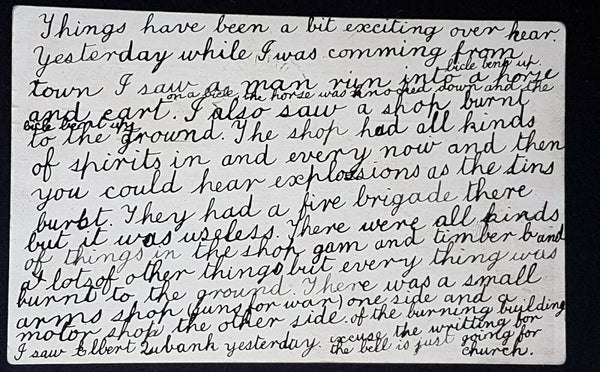 Things have been a bit exciting over hear.
Yesterday while I was comming from
bicle bent up.
town I saw a man run into a horse
on a bicle the horse was knocked down and the
and cart. I also saw a shop burnt
bicle bent up
to the ground. The shop had all kinds
of spirits in and every now and then
you could hear explosions as the tins
burst. They had a fire brigade there
but it was useless. There were all kinds
of things in the shop gam and timber and
a lots of other things but every thing was
burnt to the ground. There was a small
arms shop (guns for war) one side and a
motor shop the other side. of the burning building
I saw Elbert Eubank yesterday. excuse the writting for
the bell is just going for
church.